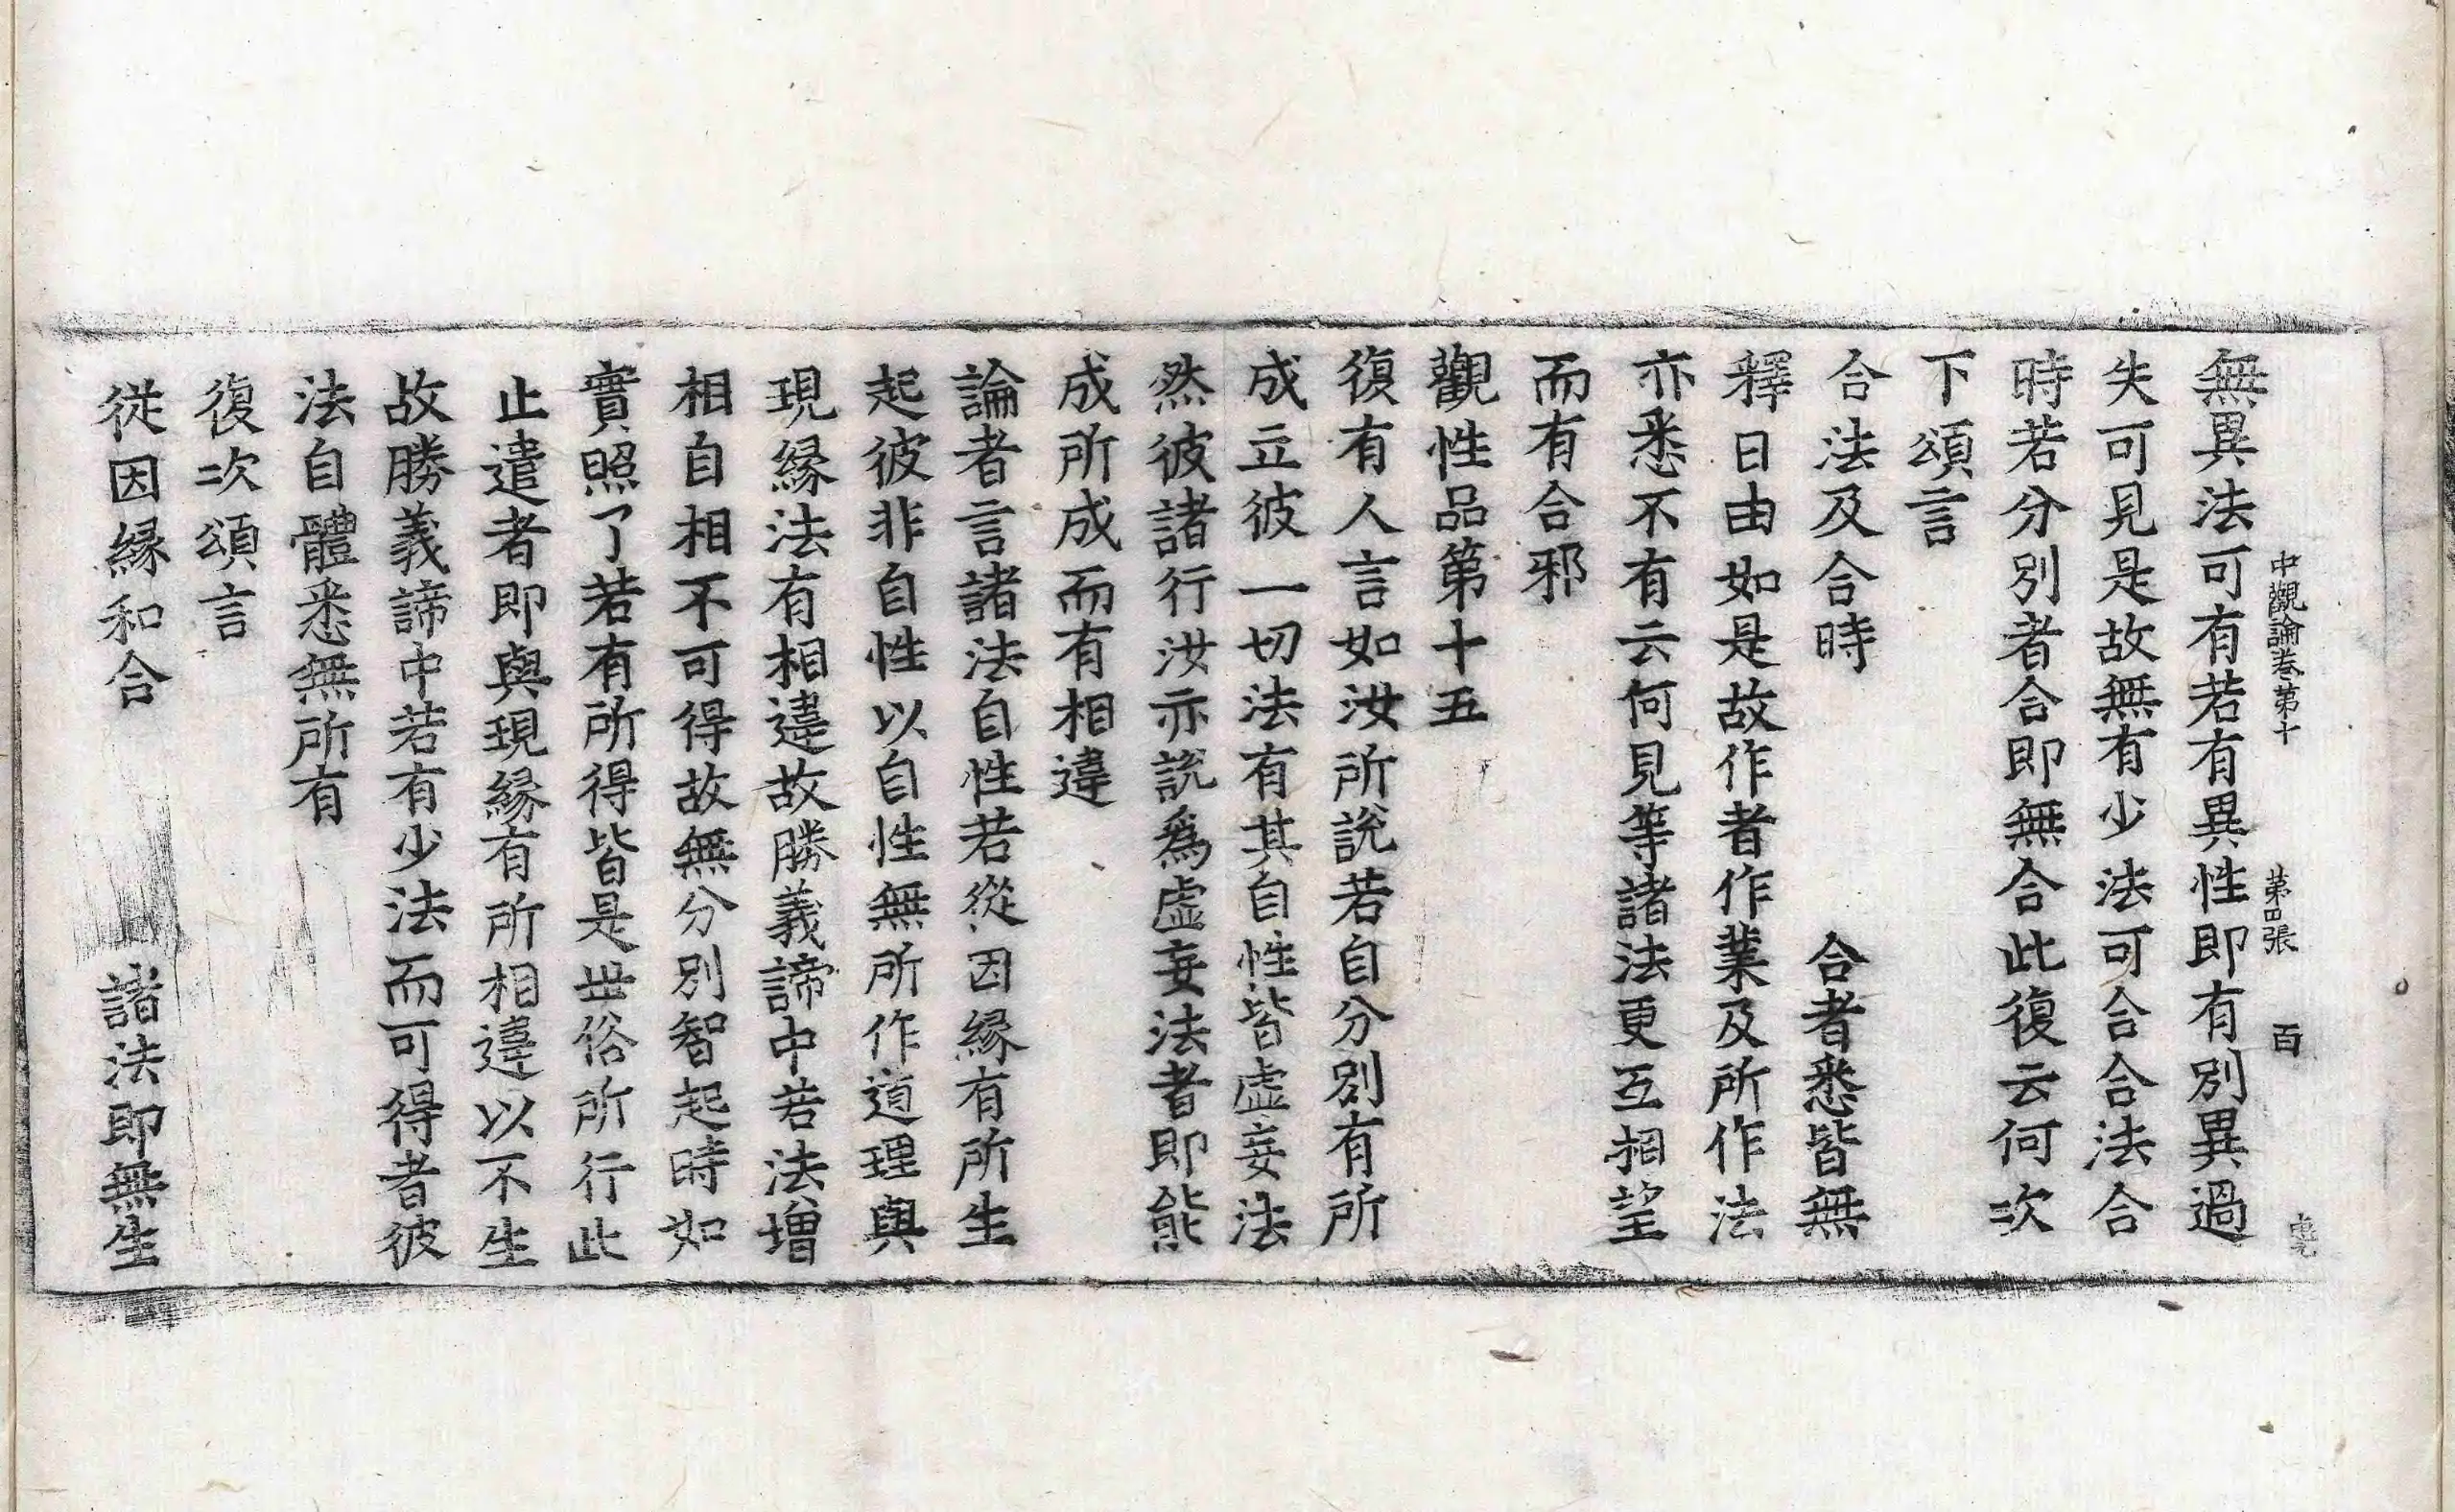 中觀論卷第十 第四張 百
無異法可有若有異性即有別異過
失可見是故無有少法可合合法合
時若分別者合即無合此復云何次
下頌言
合法及合時 合者悉皆無
釋曰由如是故作者作業及所作法
亦悉不有云何見等諸法更互相望
而有合邪
觀性品第十五
復有人言如汝所說若自分別有所
成立彼一切法有其自性皆虛妄法
然彼諸行汝亦說爲虛妄法者即能
成所成而有相違
論者言諸法自性若從因緣有所生
起彼非自性以自性無所作道理與
現緣法有相違故勝義諦中若法增
相自相不可得故無分別智起時如
實照了若有所得皆是世俗所行此
止遣者即與現緣有所相違以不生
故勝義諦中若有少法而可得者彼
法自體悉無所有
復次頌言
從因緣和合 諸法即無生